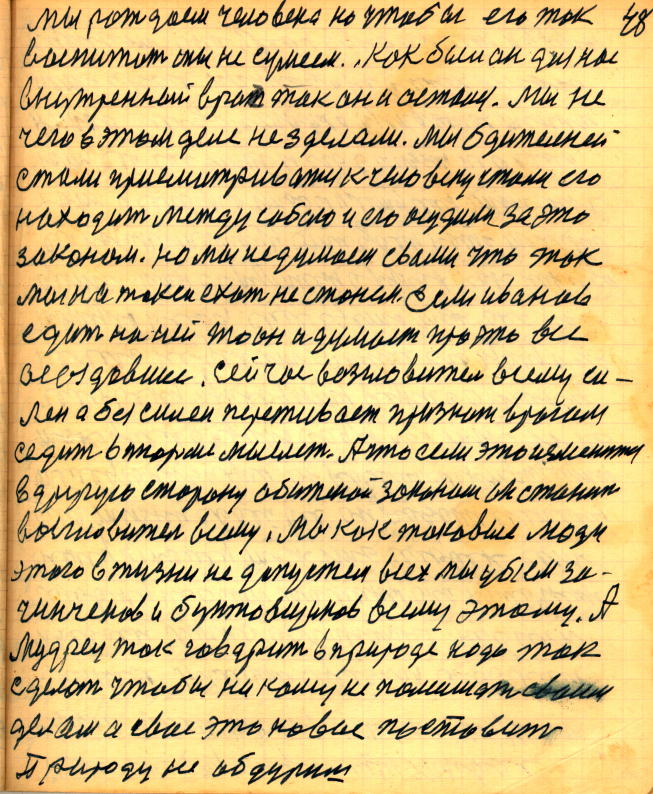 мы рождаем человека но чтобы его так 48
воспитат мы не сумеем. Как был он для нас
внутренный враг так он и остался. Мы не
чего в этом деле не зделали. Мы бдителней
стали присматриватся к человеку стали его
находит между собою и его осудили за это
законом. но мы недумаем свами что так
мы на такси ехат не станем. Если иванов
едит на ней то он и думает про это все
создавшее. Сейчас возгловител всему си-
лен а безсилен переживает признан врагом
седит в тюрме мыслет. А то если это изменится
в другую сторону обиженой законом он станит
возгловител всему. Мы как таковые люди
этого в жизни не допустем всех мы убъем за-
чинченов и бунтовщиков всему этому. А
мудрец так говарит в природе надо так
сделат чтобы никому не помешат своим
делам а свое это новое поставит
Природу не обдуриш